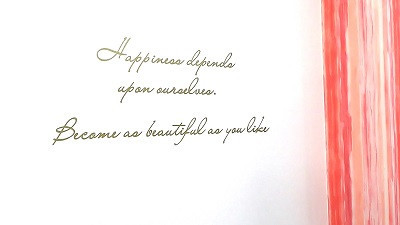 Happiness depends
upon ourselves.
Become as beautiful as you like